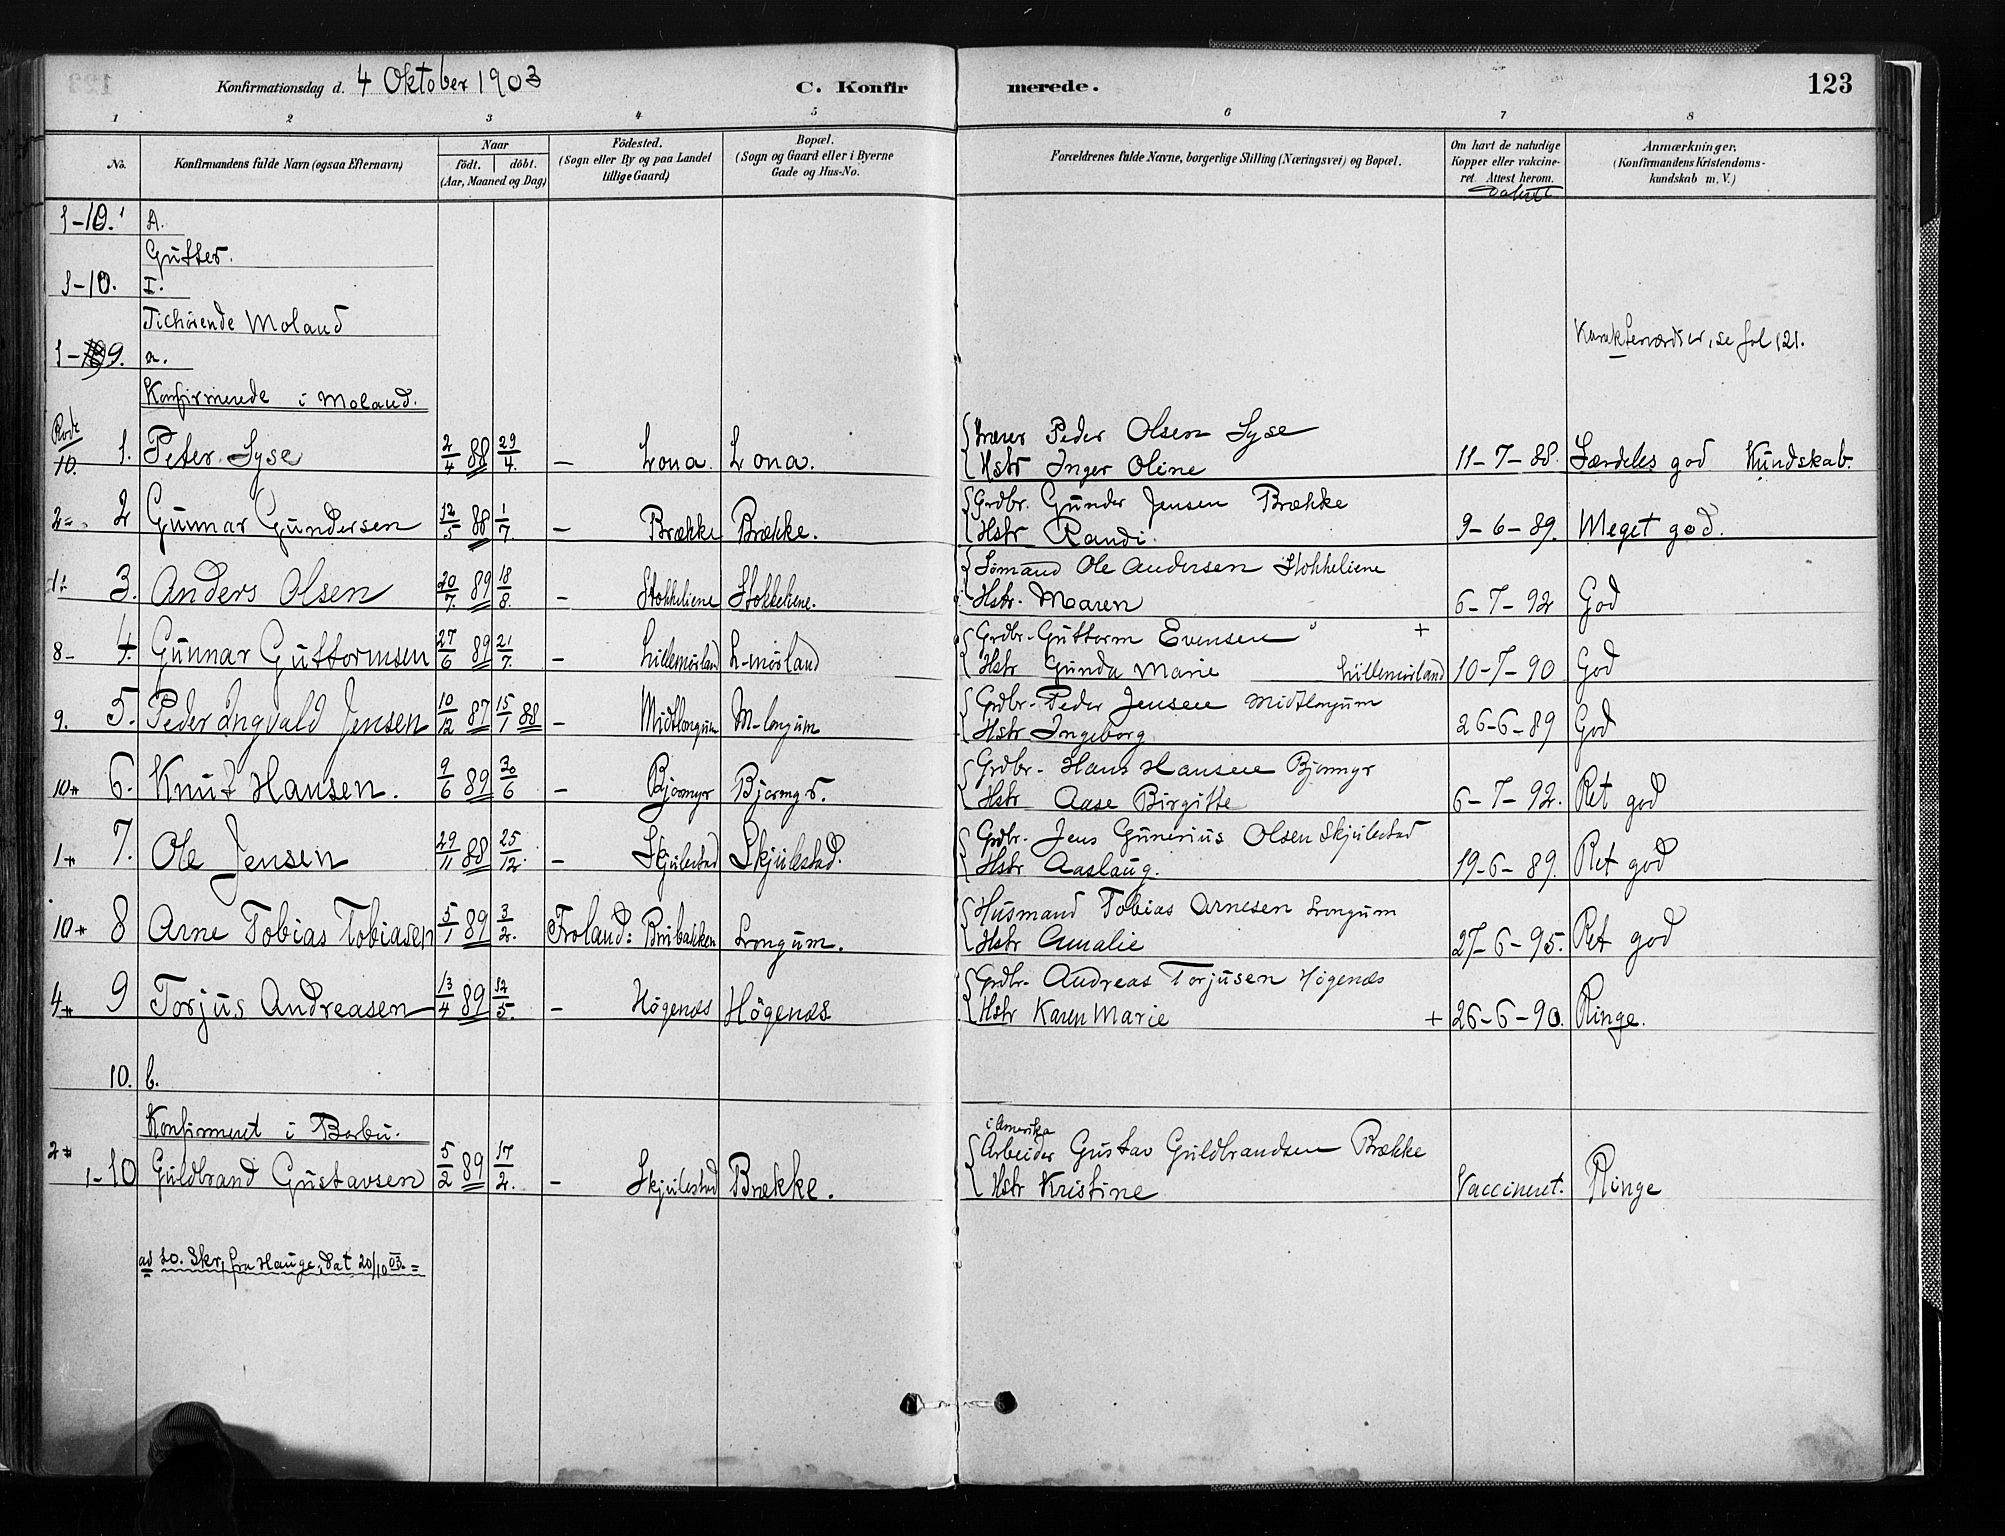 Konfirmationsdag d. 4 Oktober 1903
C. Konfirmerede.
123
1 2 3 4 5 6 7 8
No.
Konfirmandens fulde Navn (ogsaa Efternavn)
Naar
födt. döbt.
(Aar, Maaned og Dag)
Födested.
(Sogn eller By og paa Landet
tillige Gaard)
Bopæl.
(Sogn og Gaard eller i Byerne
Gade og Hus-No.
Forældrenes fulde Navne, borgerlige Stilling (Næringsvei) og Bopæl.
Om havt de naturlige
Kopper eller vakcine-
ret. Attest herom.
Anmærkninger.
(Konfirmandens Kristendoms-
kundskab m. V.)
1-10. A.
Gutter.
1-10. I.
Tilhørende Moland
1-9. a.
Karakterværdier, se fol 121.
Konfirmerede i Moland.
Rode
10. 1. Peter Lyse 2/4 88 29/4. - Lona. Lona. Lærer Peder Olsen Lyse
Hstr Inger Oline 11-7-88. Særdeles god Kundskab.
2 2 Gunnar Gundersen 12/5 88 1/7 - Brække Brække. Grdbr. Gunder Jensen Brække
Hstr Randi. 9-6-89. Meget god.
1 3. Anders Olsen 20/7. 89 18/8. - Stokkeliene Stokkeliene. Sømand Ole Andersen Stokkeliene
Hstr. Maren 6-7-92 God
8- 4. Gunnar Guttormsen 27/6 89 21/7. - Lillemørland L-mørland Grdbr. Guttorm Evensen +
Hstr Gunda Marie Lillemørland 10-7-90 God
9. 5. Peder Ingvald Jensen 10/12 87 15/1 88 - Midtlongum M-longum Grdbr. Peder Jensen Midtlongum
Hstr Ingeborg 26-6-89 God
10 6. Knut Hansen. 9/6 89 30/6 - Bjormyr Bjormyr. Grdbr. Hans Hansen Bjormyr
Hstr Aase Birgitte 6-7-92. Ret god
1 7. Ole Jensen 29/11 88 25/12. - Skjulestad Skjulestad. Grdbr. Jens Gunerius Olsen Skjulestad
Hstr Aaslaug. 19-6-89. Ret god
10 8 Arne Tobias Tobiasen 5/1 89 3/2. Froland: Brubakken Longum. Husmand Tobias Arnesen Longum
Hstr Amalie 27-6-95. Ret god
4 9 Torjus Andreasen 13/4 89 12/5. - Høgenæs Høgenæs Grdbr. Andreas Torjusen Høgenæs
Hstr Karen Marie + 26-6-90. Ringe.
10. b.
Konfirmeret i Barbu.
i Amerika
2 1-10 Guldbrand Gustavsen 5/2 89 17/2. - Skjulestad Brække. Arbeider Gustav Guldbrandsen Brække
Hstr Kristine Vaccineret. Ringe
ad 10. Skr, fra Hauge, dat 20/10 03.=